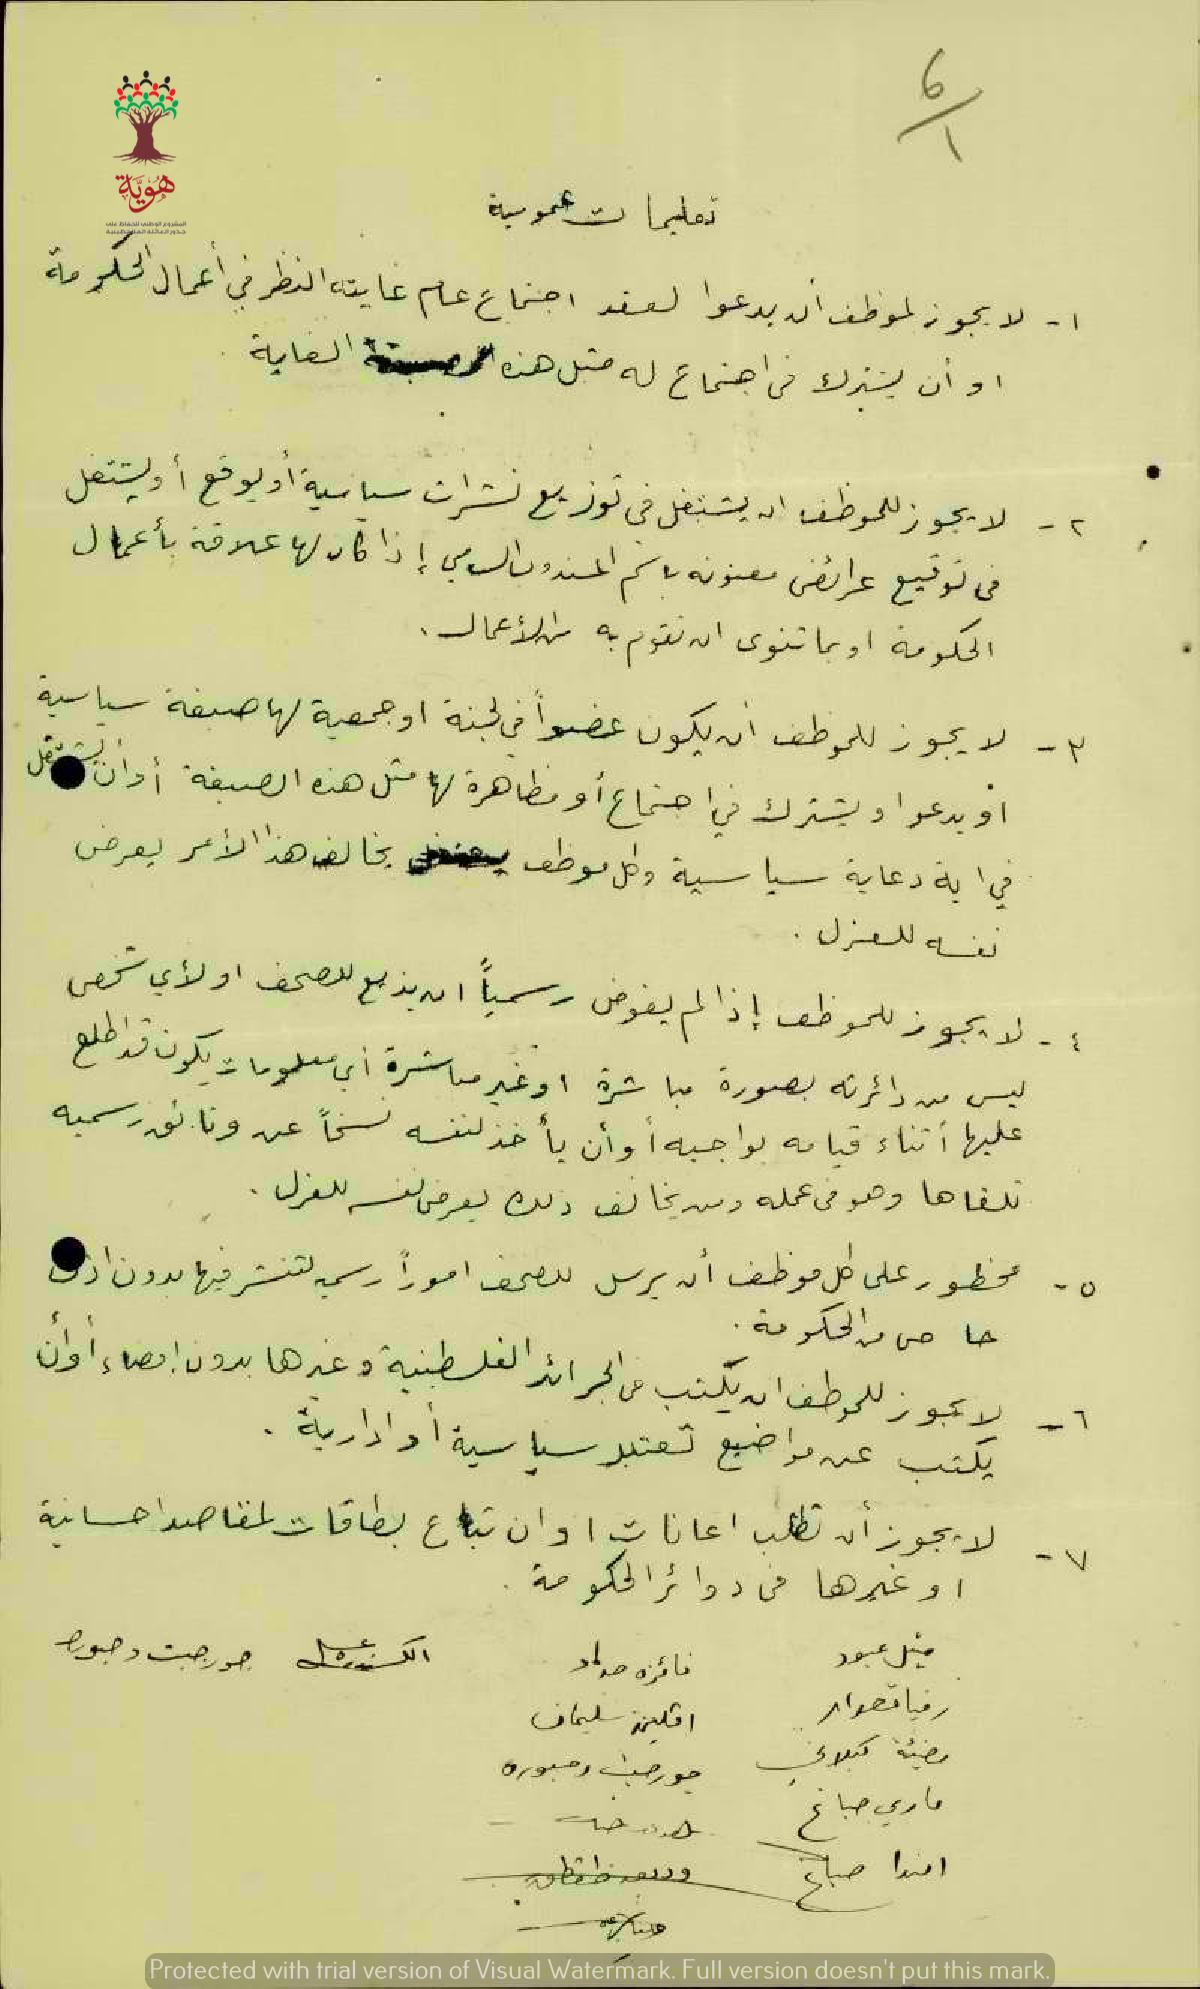 ٦/١
هُوِيَّة
المشروع الوطني للحفاظ على
جذور العائلة الفلسطينية
تعليمات عمومية
١- لا يجوز لموظف ان يدعوا لعقد اجتماع عام غايته النظر في أعمال الحكومة
او أن يشترك في اجتماع له مثل هذه الغاية .
٢- لا يجوز للموظف ان يشتغل في توزيع نشرات سياسية أو يوقع أو يشتغل
في توقيع عرائض معنونه باسم المندوب السامي إذا كان لها علاقة بأعمال
الحكومة او بما تنوى ان تقوم به من الأعمال .
٣- لا يجوز للموظف ان يكون عضواً في لجنة او جمعية لها صبغة سياسية
او يدعوا ويشترك في اجتماع أو مظاهرة لها مثل هذه الصبغة أو ان يشتغل
في اية دعاية سياسية وكل موظف يخالف هذا الأمر يعرض
نفسه للعزل .
٤- لا يجوز للموظف إذا لم يفوض رسمياً ان يذيع للصحف او لأي شخص
ليس من دائرته بصورة مباشرة او غير مباشرة أي معلومات يكون قد اطلع
عليها أثناء قيامه بواجبه أو أن يأخذ لنفسه نسخاً عن وثائق رسميه
تلقاها وهو في عمله ومن يخالف ذلك يعرض نفسه للعزل .
٥- محظور على كل موظف أن يرسل للصحف اموراً رسميه لتنشر فيها بدون اذن
خاص من الحكومة .
٦- لا يجوز للموظف ان يكتب في الجرائد الفلسطينية وغيرها بدون إمضاء أو أن
يكتب عن مواضيع تعتبر سياسية أو ادارية .
٧- لا يجوز أن تطلب اعانات او ان تباع بطاقات لمقاصد احسانية
او غيرها في دوائر الحكومة .
ميشل عبود فائزه حداد جورجيت دحبوره
سليمان
مضيئة كيلاني جورجيت دحبوره
ماري صباغ
صباغ
Protected with trial version of Visual Watermark. Full version doesn't put this mark.